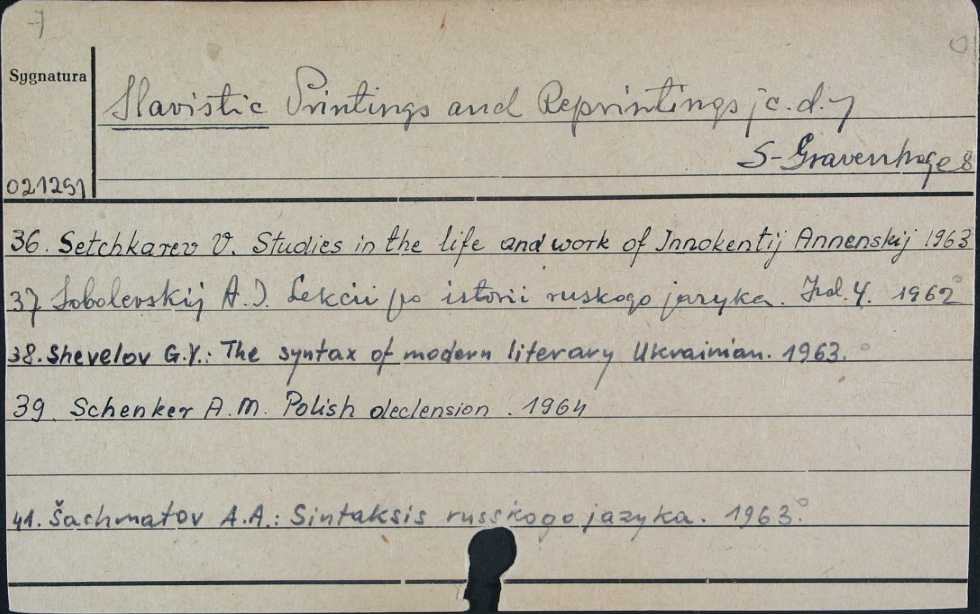 7
Sygnatura
Slavistic Printings and Reprintings /c.d. 7
S-Gravenhage 8
021251
36. Setchkarev V. Studies in the life and work of Innokentij Annenskij 1963
37 Sobolevskij A.I. Lekcii po istorii ruskogo jazyka. Izd. 4. 1962
38. Shevelov G.Y.: The syntax of modern literary Ukrainian. 1963.
39. Schenker A.M. Polish declension. 1964
41. Šachmatov A.A.: Sintaksis russkogo jazyka. 1963.